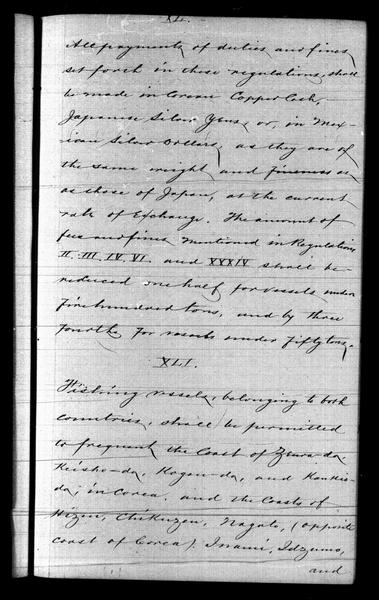 XL.
All payments of duties and fines,
set forth in these regulations, shall
be made in Corean Copper Cash,
Japanese Silver Yens, or, in Mex-
ican Silver Dollars, as they are of
the same weight and fineness as
as those of Japan, at the current
rate of Exchange. The amount of
fees and fines mentioned in Regulations
II. III. IV. VI. and XXXIV shall be
reduced one half for vessels under
Five hundred tons, and by three
fourths for vessels under fifty tons.
XLI.
Fishing vessels, belonging to both
countries, shall be permitted
to frequent the Coast of Zenra-da
Keisho-da, Kogen-da, and Kankio-
da, in Corea, and the Coasts of
Hizen, Chikuzen, Nagato, (opposite
coast of Corea) Inami, Idzumo,
and